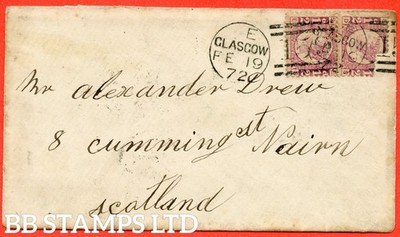 E
GLASGOW
FE 19
72
GLASGOW
Mr Alexander Drew
8 Cumming st Nairn
Scotland
BB STAMPS LTD